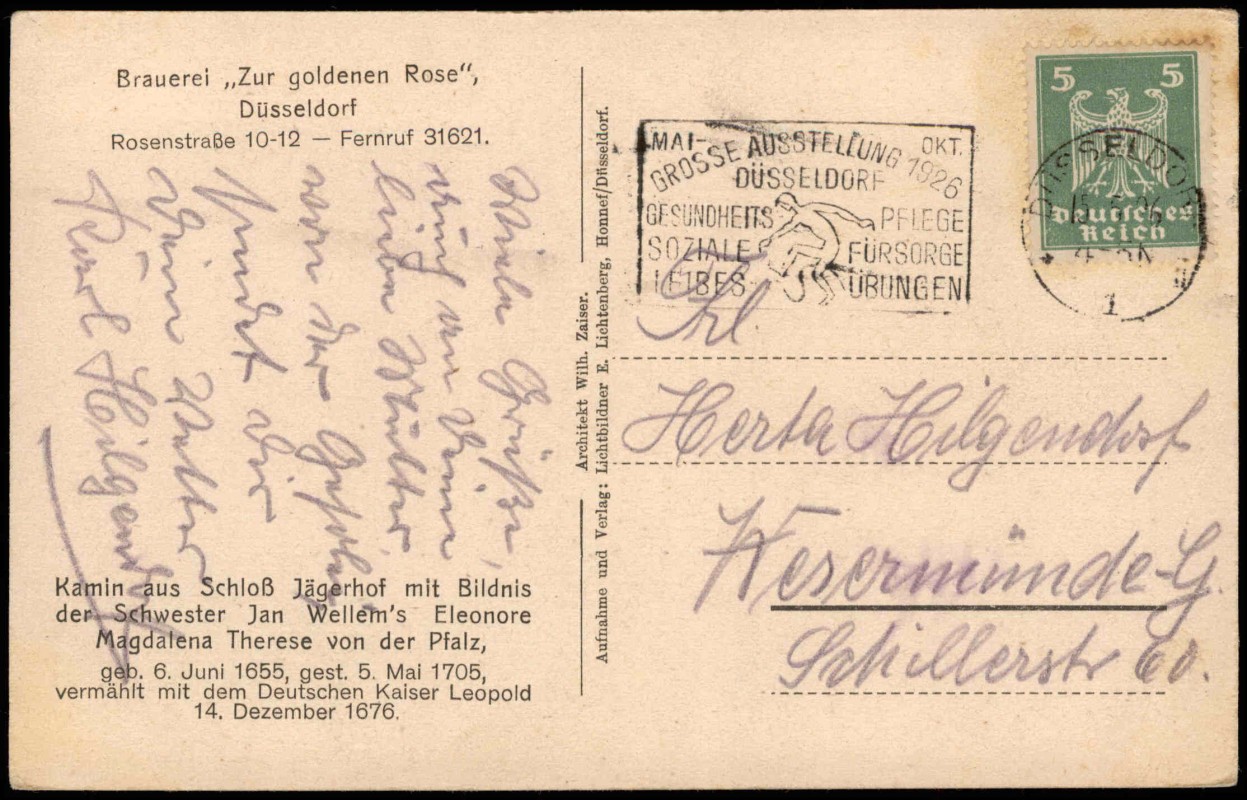 Brauerei „Zur goldenen Rose“,
Düsseldorf
Rosenstraße 10-12 — Fernruf 31621.
Viele Grüße,
auch an Deine
lieben Mutter,
von der
sendet Dir
Dein Vetter
Karl Hilgendorf
Kamin aus Schloß Jägerhof mit Bildnis
der Schwester Jan Wellem's Eleonore
Magdalena Therese von der Pfalz,
geb. 6. Juni 1655, gest. 5. Mai 1705,
vermählt mit dem Deutschen Kaiser Leopold
14. Dezember 1676.
Architekt Wilh. Zaiser.
Aufnahme und Verlag: Lichtbildner E. Lichtenberg, Honnef/Düsseldorf.
MAI- OKT.
GROSSE AUSSTELLUNG 1926
DÜSSELDORF
GESUNDHEITS PFLEGE
SOZIALE FÜRSORGE
LEIBES ÜBUNGEN
5 5
Deutsches
Reich
DÜSSELDORF
1
Frl
Herta Hilgendorf
Wesermünde-G.
Schillerstr 60.